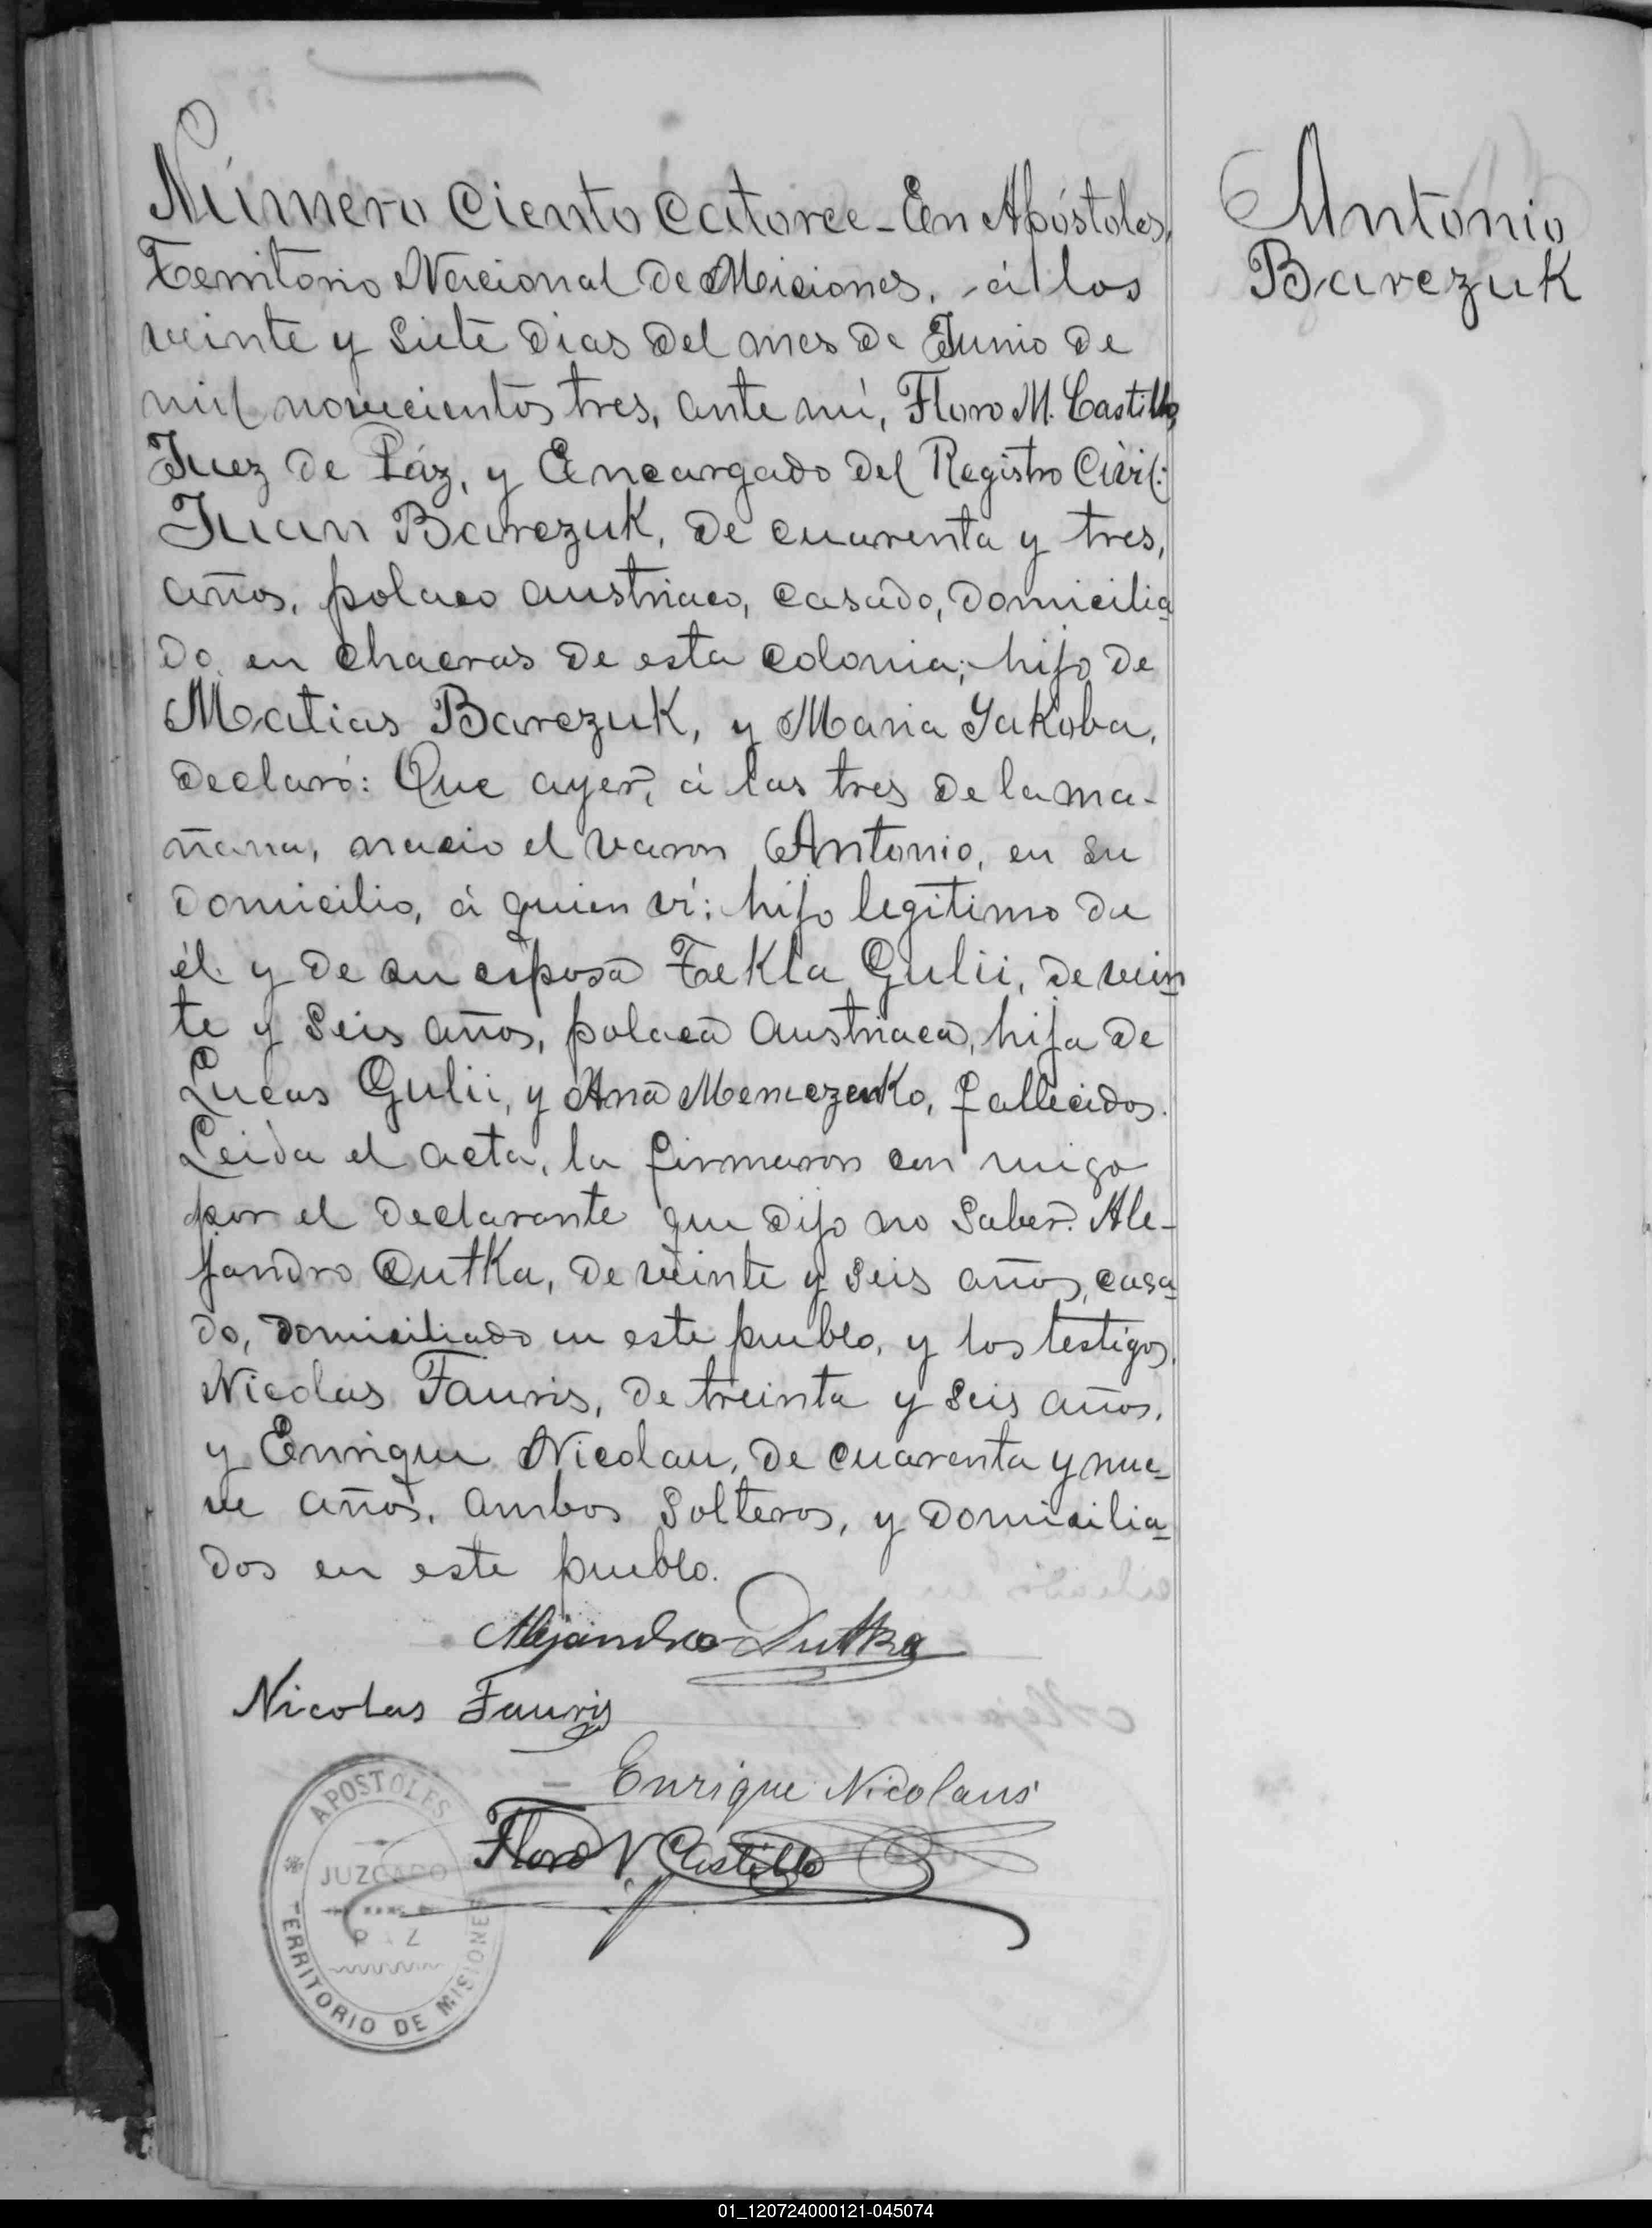 Número Ciento Catorce - En Apóstoles,
Territorio Nacional de Misiones, á los
veinte y siete dias del mes de Junio de
mil novecientos tres, ante mí, Floro M. Castillo,
Juez de Páz, y Encargado del Registro Civil:
Juan Barczuk, de cuarenta y tres,
años, polaco austriaco, casado, domicilia
do, en chacras de esta colonia; hijo de
Matias Barczuk, y Maria Yakoba,
declaró: Que ayer, á las tres de la ma-
ñana, nacio el varon Antonio, en su
domicilio, á quien ví: hijo legítimo de
él y de su esposa Tekla Gulii, de vein
te y seis años, polaca austriaca, hija de
Lucas Gulii, y Ana Memczenko, fallecidos.
Leida el acta, la firmaron con migo
por el declarante que dijo no saber. Ale-
jandro Dutka, de veinte y seis años, casa
do, domiciliado en este pueblo, y los testigos,
Nicolas Fauris, de treinta y seis años,
y Enrique Nicolau, de cuarenta y nue-
ve años, ambos solteros, y domicilia
dos en este pueblo.
Alejandro Dutka
Nicolas Fauris
Enrique Nicolaus
Floro M. Castillo
APOSTOLES
JUZGADO
PAZ
TERRITORIO DE MISIONES
Antonio
Barczuk
01_120724000121-045074